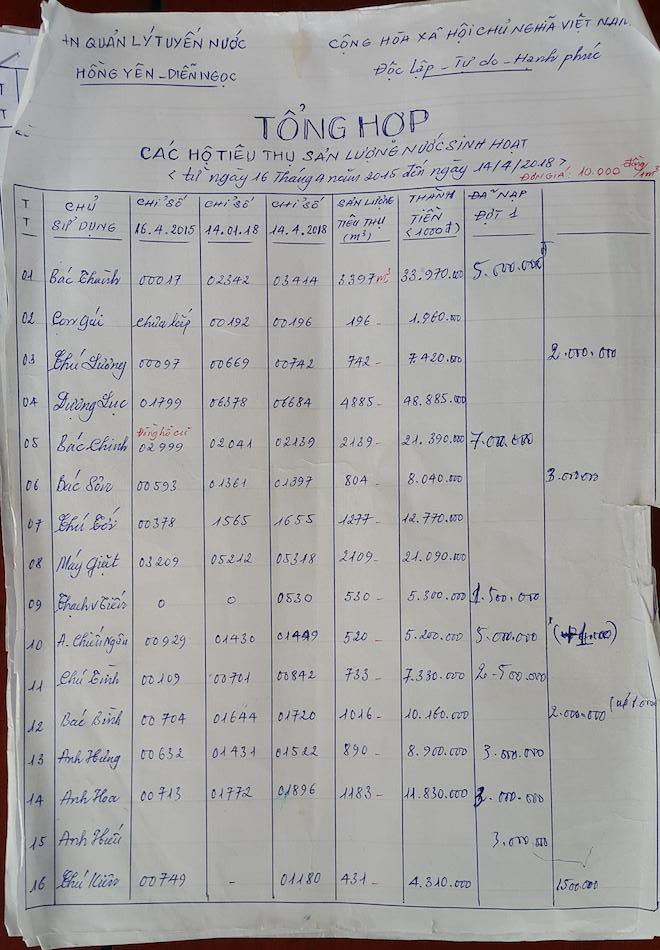 QUẢN LÝ TUYẾN NƯỚC CỘNG HÒA XÃ HỘI CHỦ NGHĨA VIỆT NAM
HỒNG YÊN - DIỄN NGỌC Độc Lập - Tự do - Hạnh phúc
TỔNG HỢP
CÁC HỘ TIÊU THỤ SẢN LƯỢNG NƯỚC SINH HOẠT
< từ ngày 16 Tháng 4 năm 2015 đến ngày 14/4/2018 > ĐƠN GIÁ: 10.000 đồng/m³
TT CHỦ SỬ DỤNG CHỈ SỐ 16.4.2015 CHỈ SỐ 14.01.18 CHỈ SỐ 14.4.2018 SẢN LƯỢNG TIÊU THỤ (m³) THÀNH TIỀN <1000đ> ĐÃ NẠP ĐỢT 1
01 Bác Thành 00017 02342 03414 3397 m³ 33.970.000 5.000.000đ
02 Con Gái Chưa lắp 00192 00196 196 - 1.960.000
03 Chú Lương 00097 00669 00742 742 - 7.420.000 2.000.000
04 Dượng Lục 01799 06378 06684 4885 - 48.885.000
05 Bác Chinh Đồng hồ cũ 02999 02041 02139 2139 - 21.390.000 7.000.000
06 Bác Sơn 00593 01361 01397 804 - 8.040.000 3.000.000
07 Chú 00378 1565 1655 1277 - 12.770.000
08 Máy Giặt 03209 05212 05318 2109 - 21.090.000
09 Thạch 0 0 0530 530 - 5.300.000 1.500.000
10 A. Chiến Ngân 00929 01430 01449 520 - 5.200.000 5.000.000
11 Chú 00109 00701 00842 733 - 7.330.000 2.500.000
12 Bác Bình 00704 01644 01720 1016 - 10.160.000 2.000.000
13 Anh Hưng 00632 01431 01522 890 - 8.900.000 3.000.000
14 Anh Hoa 00713 01772 01896 1183 - 11.830.000 2.000.000
15 Anh Hiếu 3.000.000
16 Chú Kiên 00749 - 01180 431 - 4.310.000 1500.000